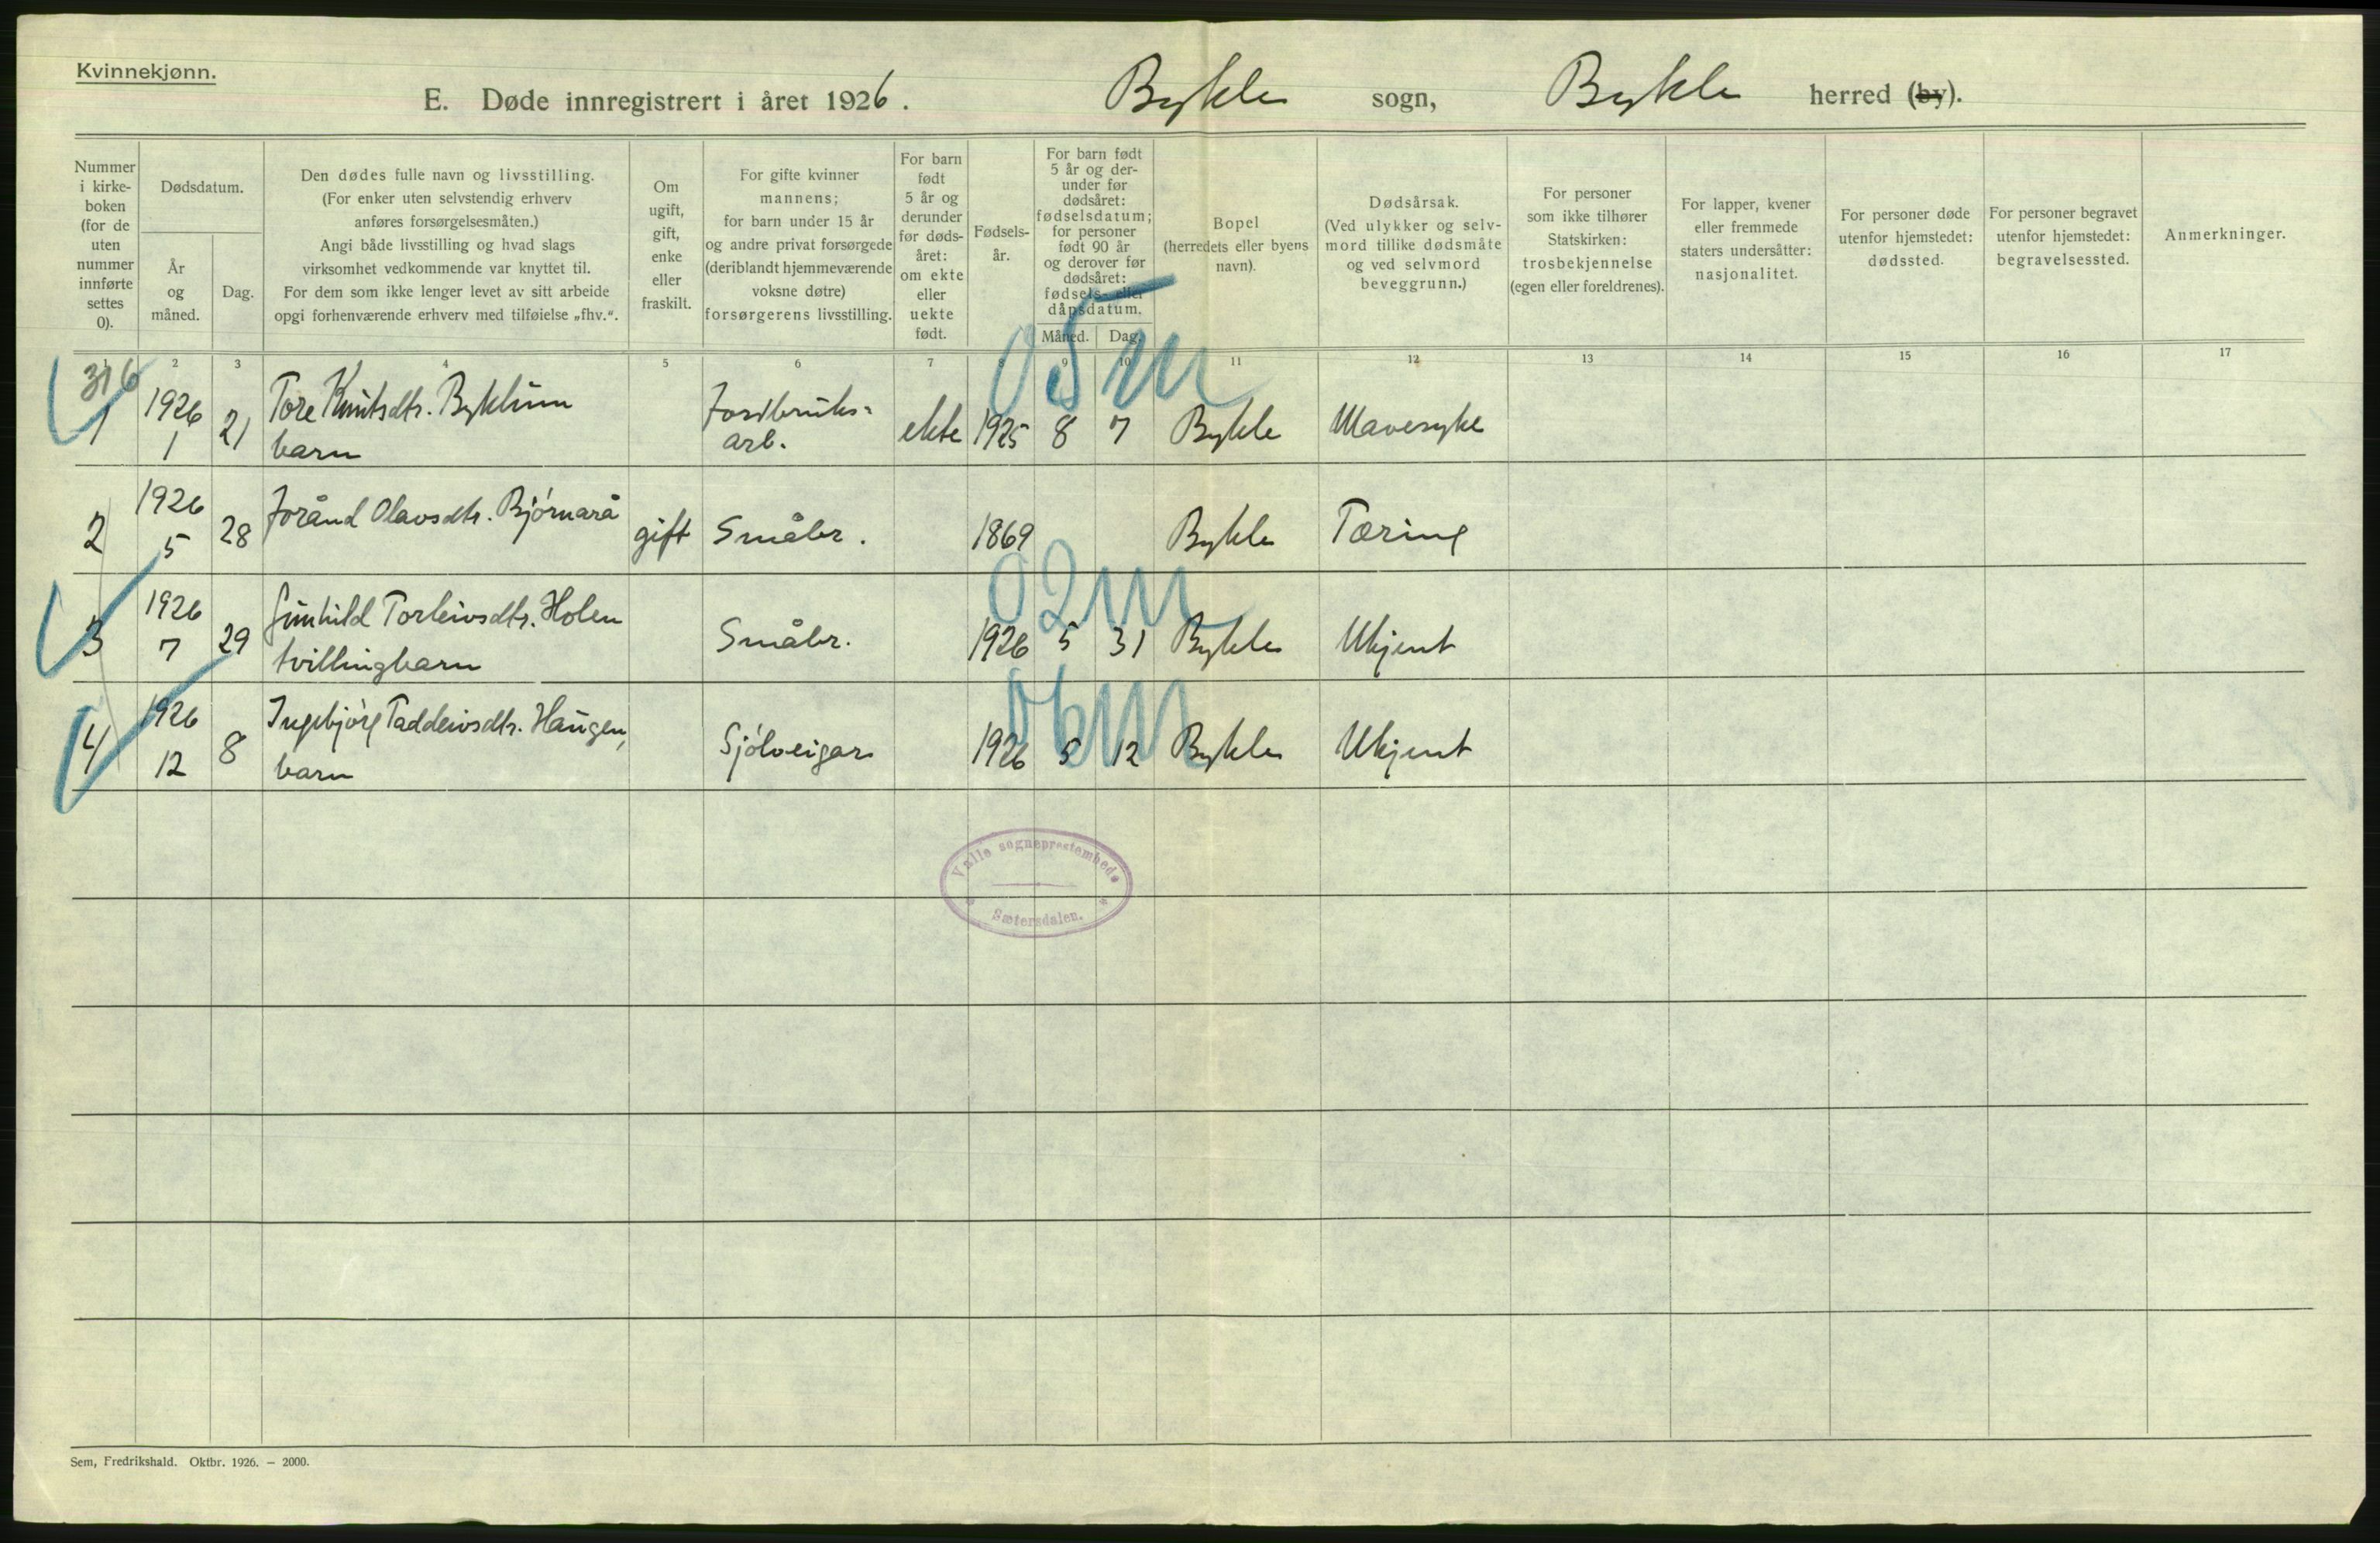 Kvinnekjønn.
E. Døde innregistrert i året 1926. Bykle sogn, Bykle herred (by).
Nummer i kirke-boken (for de uten nummer innførte settes 0).
Dødsdatum.
År og måned.
Dag.
Den dødes fulle navn og livsstilling.
(For enker uten selvstendig erhverv
anføres forsørgelsesmåten.)
Angi både livsstilling og hvad slags
virksomhet vedkommende var knyttet til.
For dem som ikke lenger levet av sitt arbeide
opgi forhenværende erhverv med tilføielse „fhv.“.
Om
ugift,
gift,
enke
eller
fraskilt.
For gifte kvinner
mannens;
for barn under 15 år
og andre privat forsørgede
(deriblandt hjemmeværende
voksne døtre)
forsørgerens livsstilling.
For barn
født
5 år og
derunder
før døds-
året:
om ekte
eller
uekte
født.
Fødsels-
år.
For barn født
5 år og der-
under før
dødsåret:
fødselsdatum;
for personer
født 90 år
og derover før
dødsåret:
fødsels- eller
dåpsdatum.
Måned. Dag.
Bopel
(herredets eller byens
navn).
Dødsårsak.
(Ved ulykker og selv-
mord tillike dødsmåte
og ved selvmord
beveggrunn.)
For personer
som ikke tilhører
Statskirken:
trosbekjennelse
(egen eller foreldrenes).
For lapper, kvener
eller fremmede
staters undersåtter:
nasjonalitet.
For personer døde
utenfor hjemstedet:
dødssted.
For personer begravet
utenfor hjemstedet:
begravelsessted.
Anmerkninger.
2 3 4 5 6 7 8 9 10 11 12 13 14 15 16 17
316
05 m
1 1926 1 21 Tore Knutsdtr. Byklum
barn Jordbruks-
arb. ekte 1925 8 7 Bykle Mavesyke
2 1926 5 28 Jorånd Olavsdtr. Bjørnarå gift Småbr. 1869 Bykle Tæring
02 m
3 1926 7 29 Gunhild Torleivsdtr. Holen
tvillingbarn Småbr. 1926 5 31 Bykle Ukjent
06 m
4 1926 12 8 Ingebjørg Taddeivsdtr. Haugen,
barn Sjølveigar 1926 5 12 Bykle Ukjent
Valle sogneprestembede
Sætersdalen.
Sem, Fredrikshald. Oktbr. 1926. — 2000.